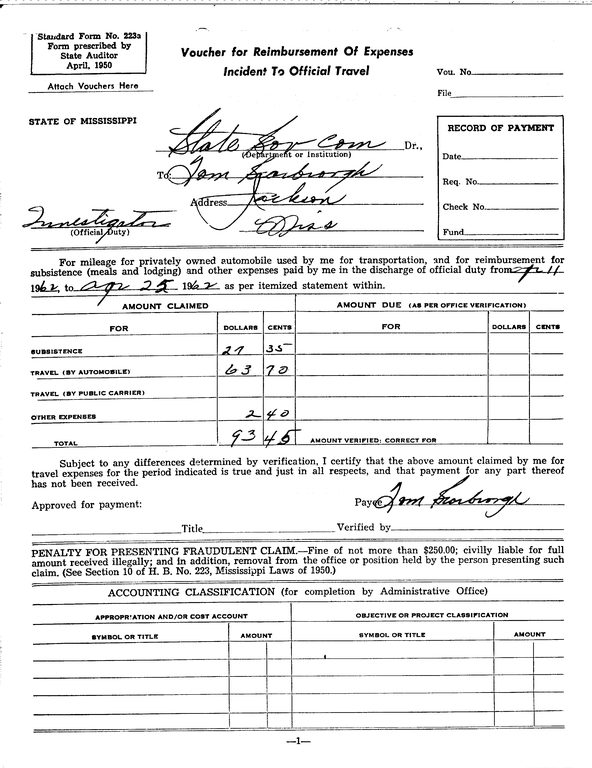 Standard Form No. 223a
Form prescribed by
State Auditor
April, 1950
Attach Vouchers Here
Voucher for Reimbursement Of Expenses
Incident To Official Travel
Vou. No.
File
STATE OF MISSISSIPPI
State Sov Com Dr.,
(Department or Institution)
To: Tom Scarbrough
Address Jackson
Miss
Investigator
(Official Duty)
RECORD OF PAYMENT
Date
Req. No.
Check No.
Fund
For mileage for privately owned automobile used by me for transportation, and for reimbursement for
subsistence (meals and lodging) and other expenses paid by me in the discharge of official duty from Apr 11
1962, to Apr 25 1962 as per itemized statement within.
AMOUNT CLAIMED AMOUNT DUE (AS PER OFFICE VERIFICATION)
FOR DOLLARS CENTS FOR DOLLARS CENTS
SUBSISTENCE 27 35
TRAVEL (BY AUTOMOBILE) 63 70
TRAVEL (BY PUBLIC CARRIER)
OTHER EXPENSES 2 40
TOTAL 93 45 AMOUNT VERIFIED: CORRECT FOR
Subject to any differences determined by verification, I certify that the above amount claimed by me for
travel expenses for the period indicated is true and just in all respects, and that payment for any part thereof
has not been received.
Approved for payment: Payee Tom Scarbrough
Title Verified by
PENALTY FOR PRESENTING FRAUDULENT CLAIM.—Fine of not more than $250.00; civilly liable for full
amount received illegally; and in addition, removal from the office or position held by the person presenting such
claim. (See Section 10 of H. B. No. 223, Mississippi Laws of 1950.)
ACCOUNTING CLASSIFICATION (for completion by Administrative Office)
APPROPRIATION AND/OR COST ACCOUNT OBJECTIVE OR PROJECT CLASSIFICATION
SYMBOL OR TITLE AMOUNT SYMBOL OR TITLE AMOUNT
—1—